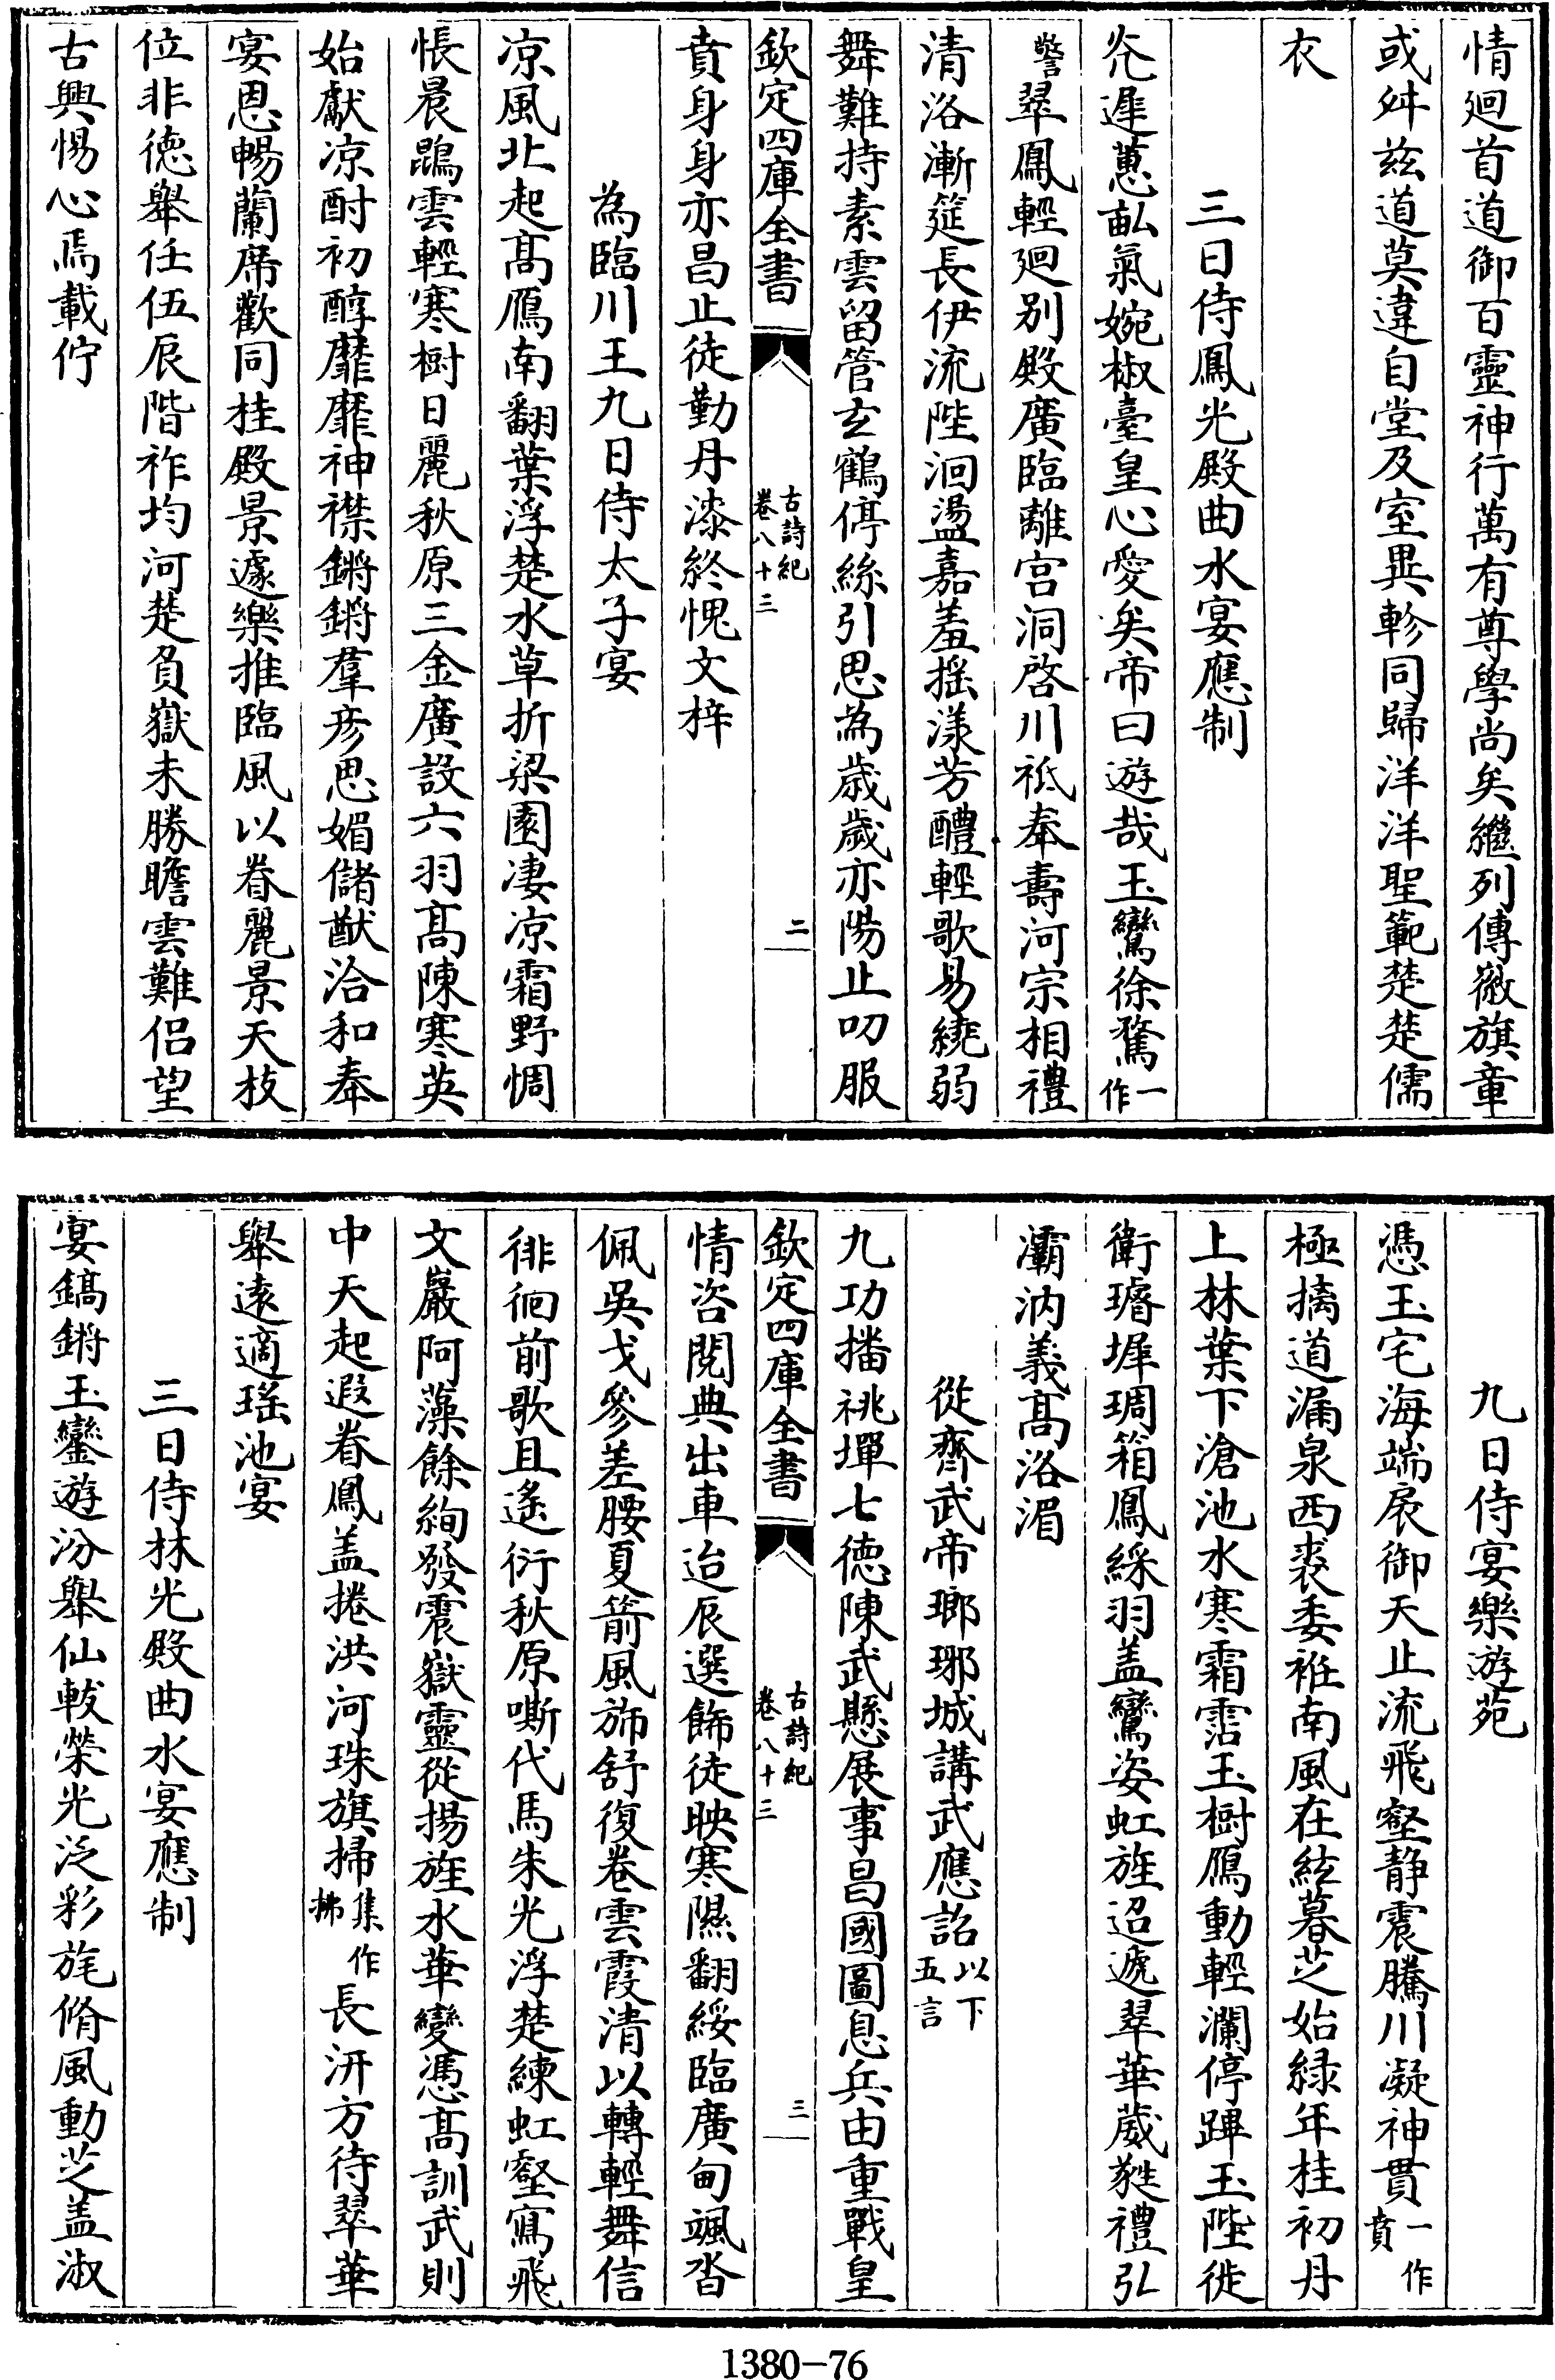 情廻首道御百靈神行萬有尊學尚矣繼列傳徽旗章
或舛兹道莫違自堂及室異軫同歸洋洋聖範楚楚儒
衣
三日侍鳳光殿曲水宴應制
光遲蕙畆氣婉椒臺皇心愛矣帝曰遊哉玉鸞徐騖一作
警翠鳳輕廻别殿廣臨離宫洞啓川祗奉壽河宗相禮
清洛漸筵長伊流陛洄盪嘉羞摇漾芳醴輕歌易繞弱
舞難持素雲留管玄鶴停絲引思為歳歳亦陽止叨服
欽定四庫全書 古詩紀卷八十三 二
賁身身亦昌止徒勤丹漆終愧文梓
為臨川王九日侍太子宴
凉風北起髙鴈南翻葉浮楚水草折梁園凄凉霜野惆
悵晨鵾雲輕寒樹日麗秋原三金廣設六羽髙陳寒英
始獻凉酎初醇靡靡神襟鏘鏘羣彦思媚儲猷洽和奉
宴恩暢蘭席歡同桂殿景遽樂推臨風以眷麗景天枝
位非徳舉任伍辰階祚均河楚負嶽未勝瞻雲難侣望
古興惕心焉載佇
九日侍宴樂遊苑
憑玉宅海端扆御天止流飛壑静震騰川凝神貫一作賁
極摛道漏泉西裘委袵南風在絃暮芝始緑年桂初丹
上林葉下滄池水寒霜霑玉樹鴈動輕瀾停蹕玉陛徙
衛瑶墀琱箱鳳綵羽盖鸞姿虹旌迢遞翠華葳蕤禮弘
灞汭義髙洛湄
從齊武帝瑯琊城講武應詔以下五言
九功播祧墠七徳陳武懸展事昌國圖息兵由重戰皇
欽定四庫全書 古詩紀卷八十三 三
情咨閲典出車迨辰選飾徒映寒隰翻綏臨廣甸颯沓
佩吳戈參差腰夏箭風斾舒復卷雲霞清以轉輕舞信
徘徊前歌且遥衍秋原嘶代馬朱光浮楚練虹壑寫飛
文巖阿藻餘絢發震嶽靈從揚旌水華變憑髙訓武則
中天起遐眷鳳盖捲洪河珠旗掃集作拂長汧方待翠華
舉遠適瑶池宴
三日侍林光殿曲水宴應制
宴鎬鏘玉鑾遊汾舉仙軷榮光泛彩旄脩風動芝盖淑
1380-76